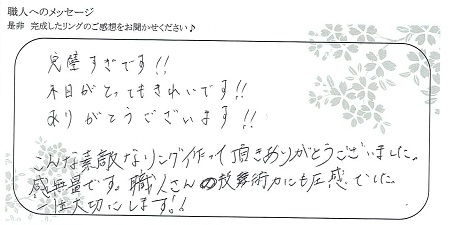 職人へのメッセージ
是非 完成したリングのご感想をお聞かせください♪
完璧すぎです!!
木目がとってもきれいです!!
ありがとうございます!!
こんな素敵なリング作って頂きありがとうございました。
感無量です。職人さんの技術力にも圧感でした。
一生大切にします!!